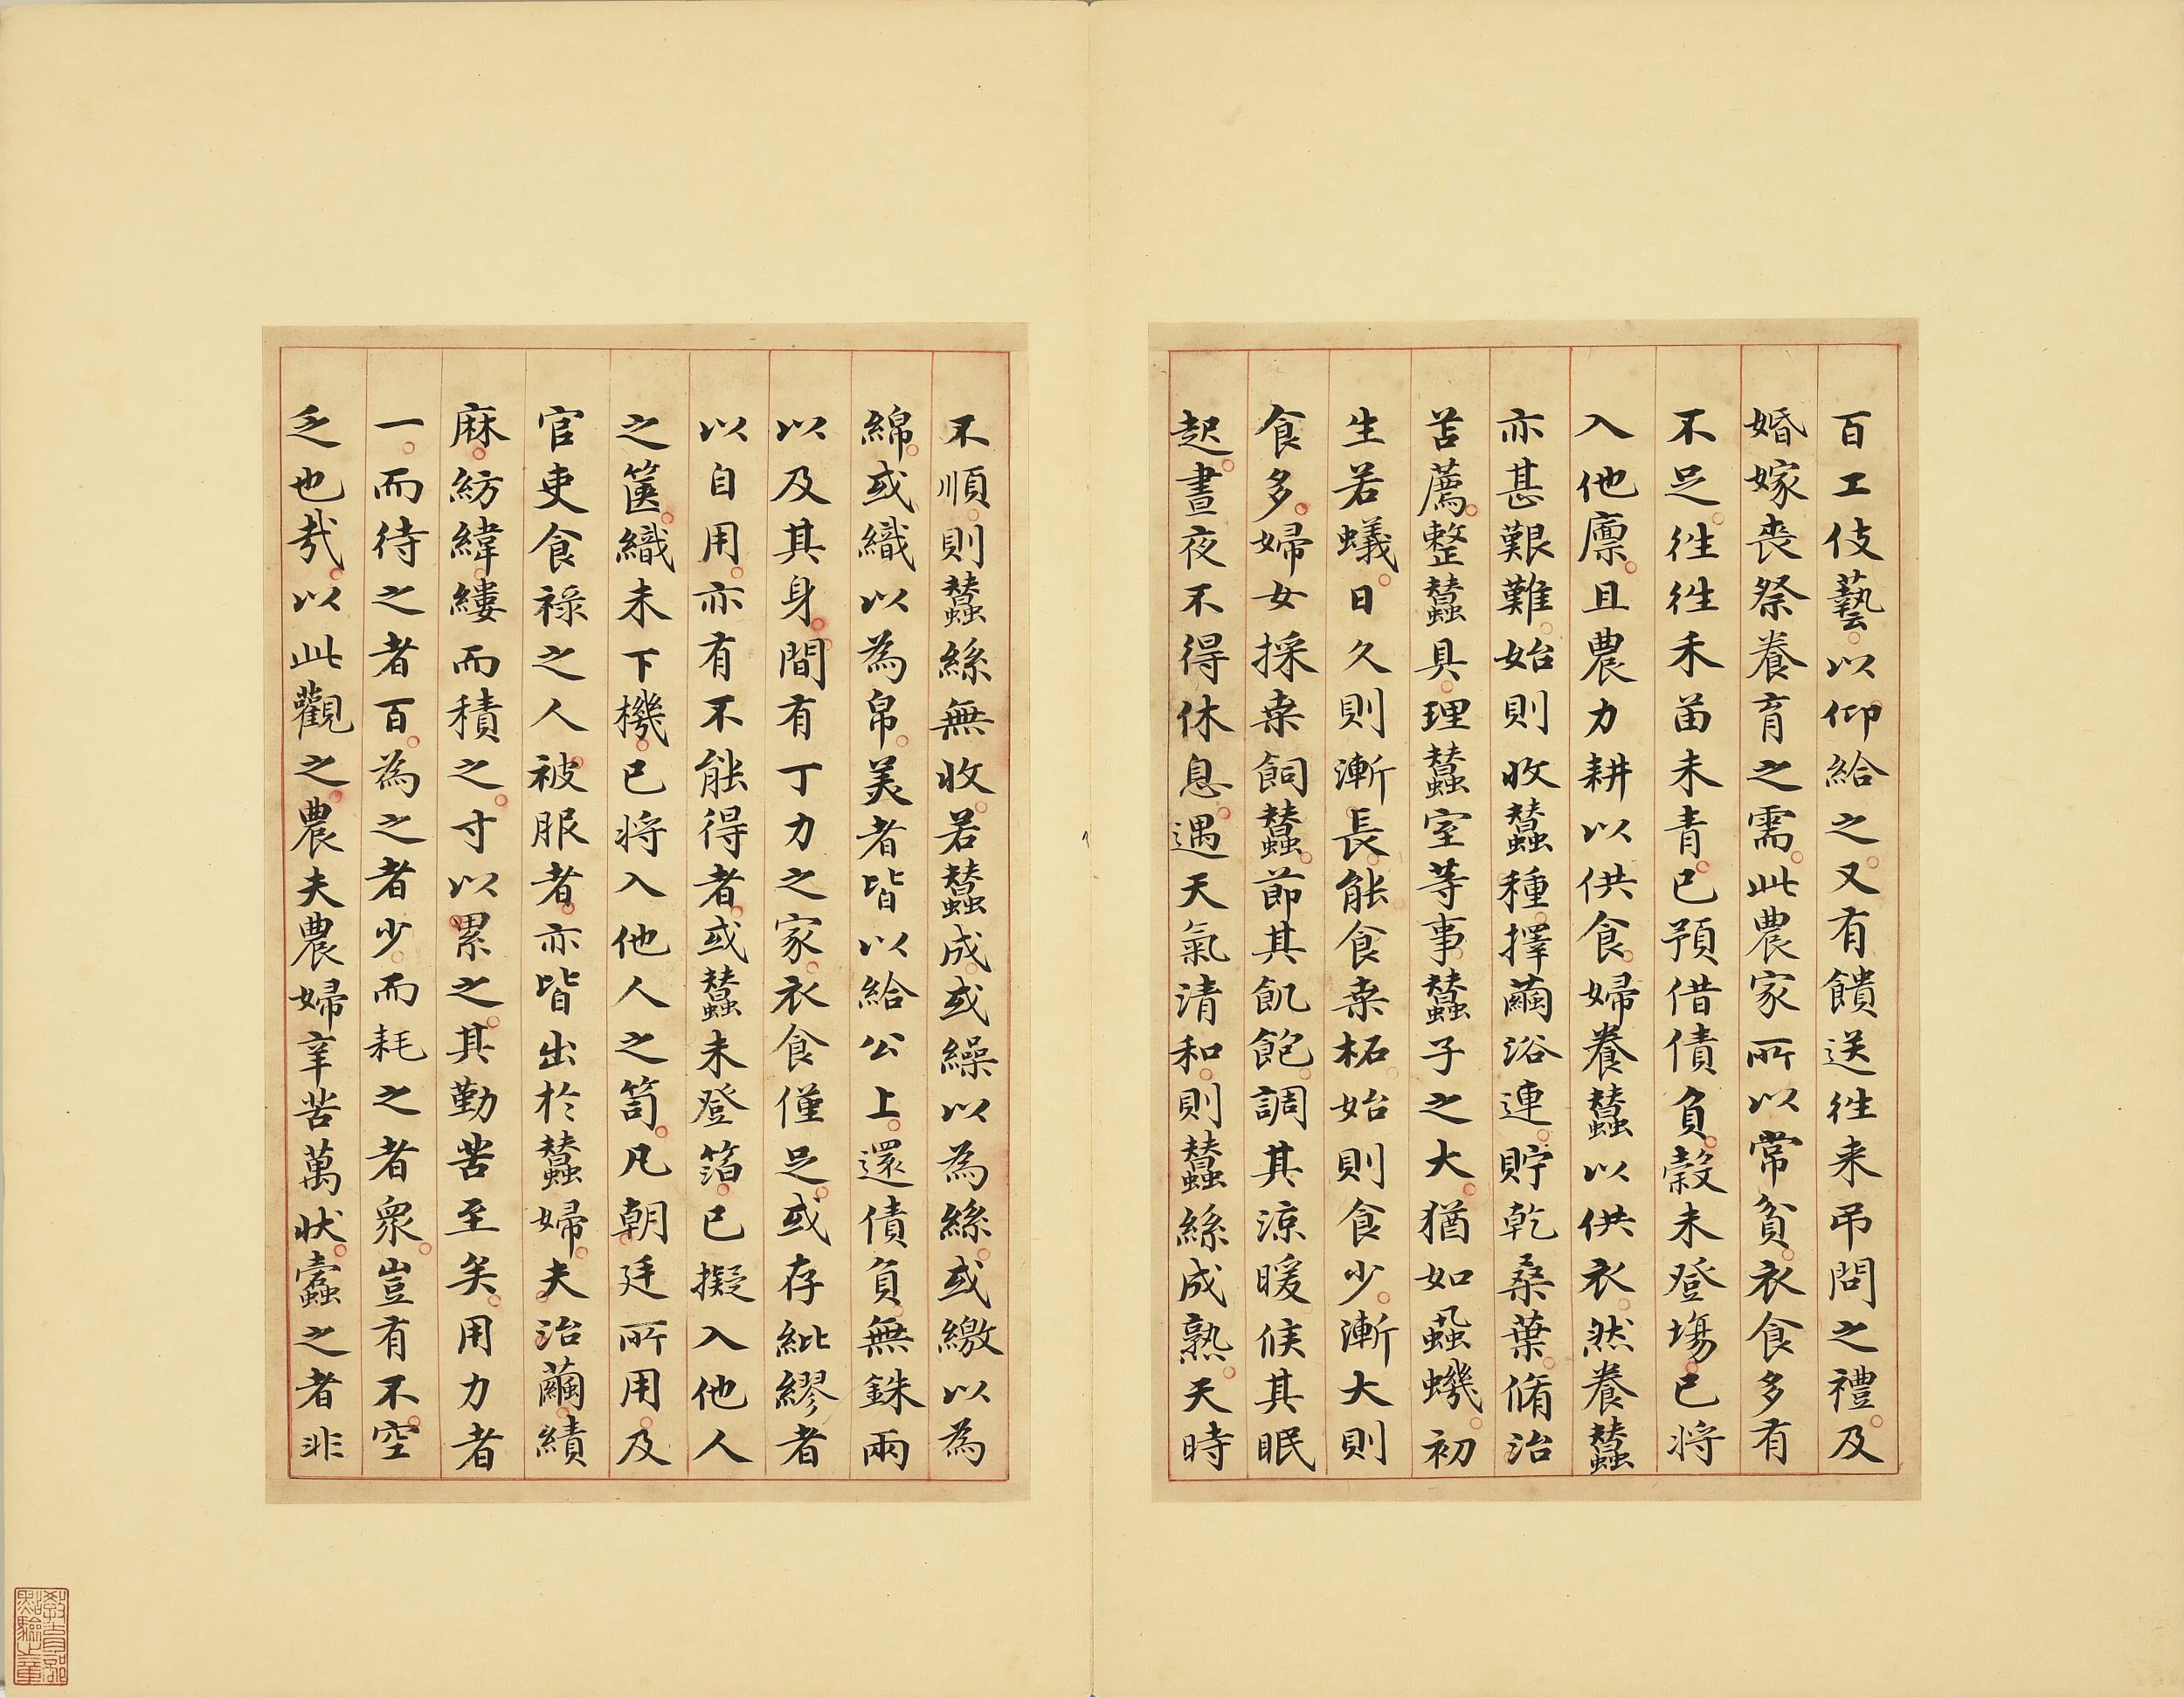 百工伎藝以仰給之又有饋送徃来吊問之禮及
婚嫁喪祭養育之需此農家所以常貧衣食多有
不足徃徃禾苗未青已預借債負穀未登塲已將
入他廪且農力耕以供食婦養蠶以供衣然養蠶
亦甚艱難始則收蠶種擇繭浴連貯乾桑葉脩治
苫薦整蠶具理蠶室等事蠶子之大猶如蝨蟣初
生若蟻日久則漸長能食桒柘始則食少漸大則
食多婦女採桒飼蠶節其飢飽調其涼暖候其眠
起晝夜不得休息遇天氣清和則蠶絲成熟天時
不順則蠶絲無收若蠶成或繰以為絲或繳以為
綿或織以為帛美者皆以給公上還債負無銖兩
以及其身間有丁力之家衣食僅足或存紕繆者
以自用亦有不能得者或蠶未登箔已擬入他人
之篋織未下機已將入他人之笥凡朝廷所用及
官吏食祿之人被服者亦皆出於蠶婦夫治繭績
麻紡緯縷而積之寸以累之其勤苦至矣用力者
一而待之者百為之者少而耗之者衆豈有不空
乏也㦲以此觀之農夫農婦辛苦萬狀蠹之者非
教育部點驗之章